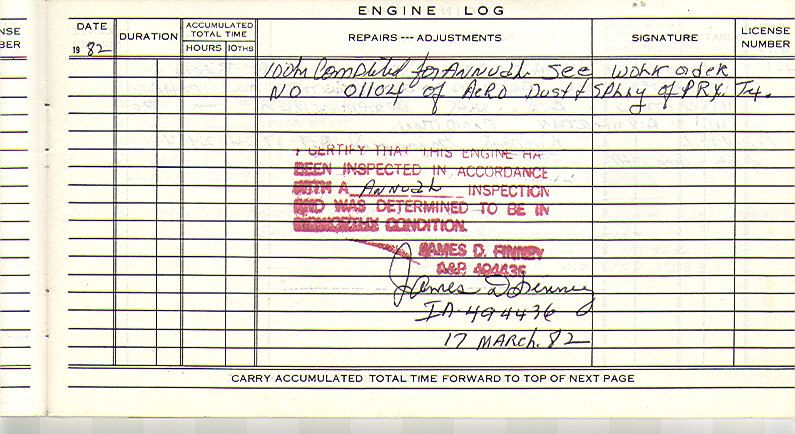 ENGINE LOG
NSE
BER
DATE
19 82
DURATION
ACCUMULATED
TOTAL TIME
HOURS 10THS
REPAIRS --- ADJUSTMENTS
SIGNATURE
LICENSE
NUMBER
100hr Completed for Annual. See work order
NO 01104 of Aero Dust & Spray of PRX. Tx.
I CERTIFY THAT THIS ENGINE HA
BEEN INSPECTED IN ACCORDANCE
WITH A Annual INSPECTION
AND WAS DETERMINED TO BE IN
AIRWORTHY CONDITION.
JAMES D. FINNEY
A&P 494436
James D Finney
IA-494436
17 MARCH. 82
CARRY ACCUMULATED TOTAL TIME FORWARD TO TOP OF NEXT PAGE